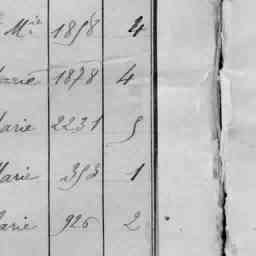 Mie 1858 4
Marie 1878 4
Marie 2231 5
Marie 393 1
Marie 926 2